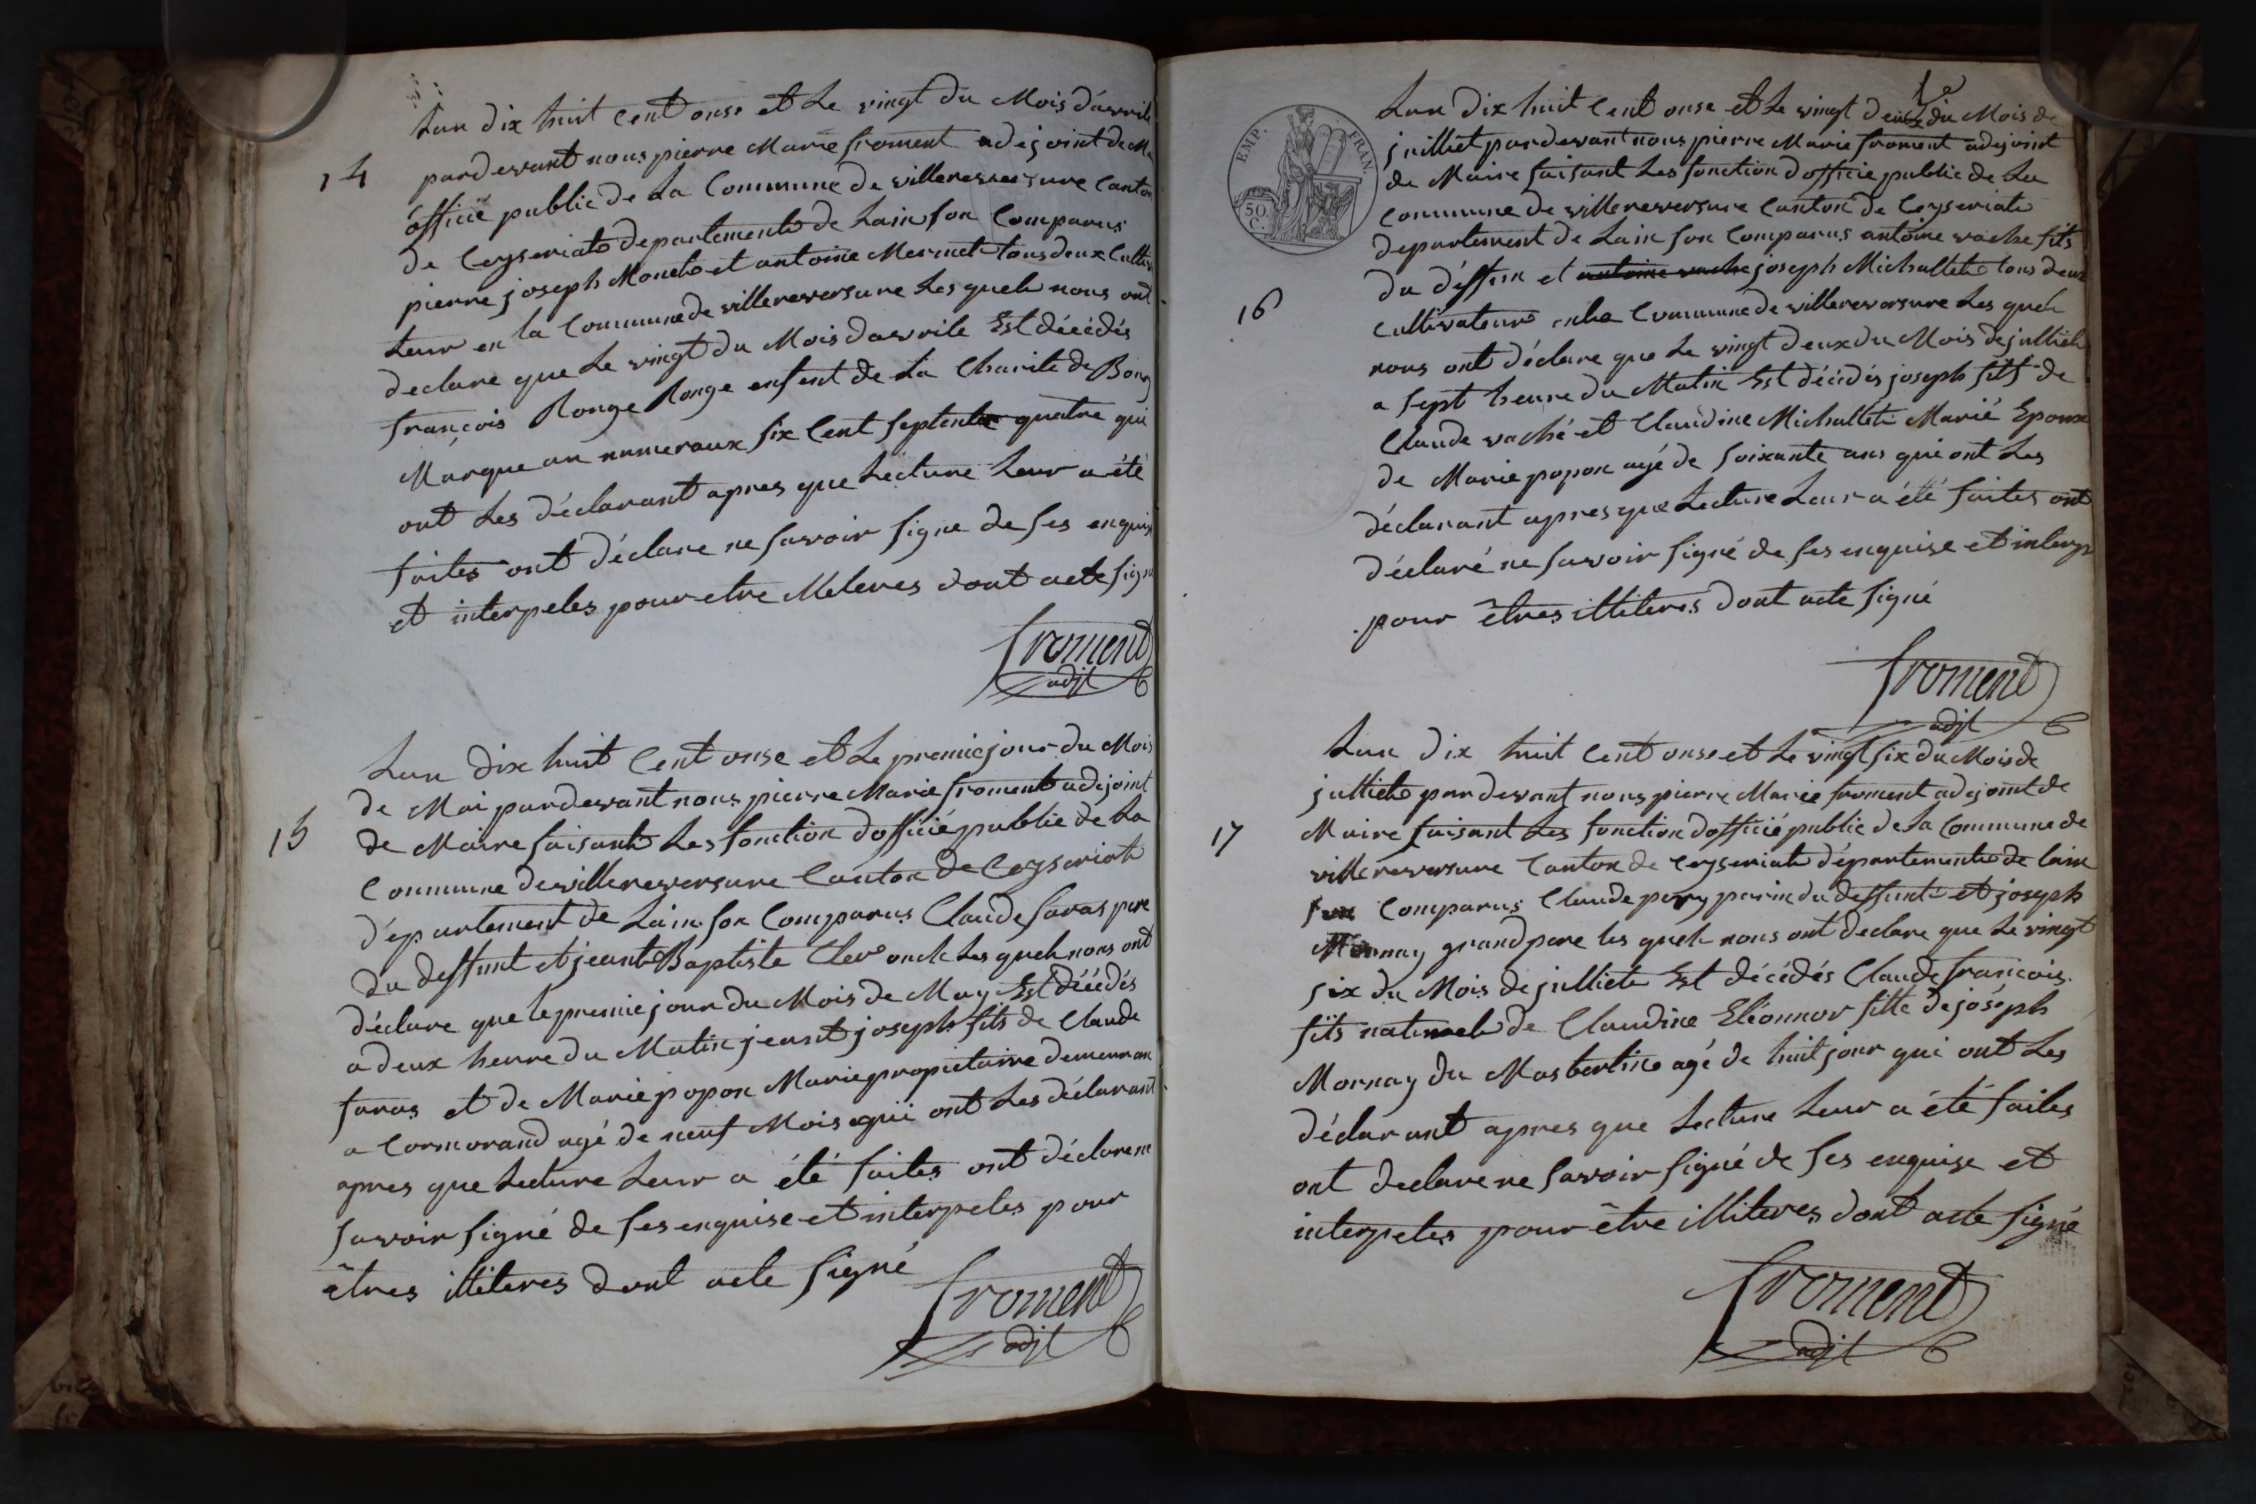 14
Lan dix huit Cent onse et Le vingt du Mois d'avrile
pardevant nous pierre Marie froment adejoint de M
officié public de La Commune de villereversure Canton
de Ceyseriate departemente de Lain son Comparus
pierre joseph Monet et antoine Mermet tous deux Cultiv
teur en la Commune de villereversure Les quels nous ont
declare que Le vingt du Mois davrile Est décédés
françois Ronge Ronge enfent de La Charite de Bourg
Marque au numeroux six Cent septente quatre qui
ont Les déclarant apres que Lecture Leur a été
faites ont déclare ne savoir signe de ses enquis
et interpeles pour etre illeteres dont acte signé
froment
adjt
15
Lan dix huit Cent onse et Le premie jour du Mois
de Mai pardevant nous pierre Marie froment adejoint
de Maire faisant Les fonction dofficié public de La
Commune de villereversure Canton de Ceyseriate
département de Lain son Comparus Claude faras pere
du deffunt et jeant Baptiste Cler oncle Les quels nous ont
déclare que le premie jour du Mois de May Est décédés
a deux heure du Matin jeant joseph fils de Claude
faras et de Marie popon Marie propietaire demeuran
a Cormorand agé de neuf Mois qui ont Les déclarant
apres que Lecture Leur a été faites ont déclare ne
savoir signé de ses enquise et interpeles pour
êtres illiteres dont acte signé
froment
adjt
EMP. FRAN.
50. C.
16
Lan dix huit Cent onse et Le vingt deux du Mois de
juilliet pardevant nous pierre Marie froment adejoint
de Maire faisant Les fonction dofficié public de La
Commune de villereversure Canton de Ceyseriate
departement de Lain son Comparus antoine vache fils
du déffun et antoine vache joseph Michallet tous deux
Cultivateur enla Commune de villereversure Les quels
nous ont déclare que Le vingt deux du Mois de julliet
a sept heure du Matin Est décédés joseph fils de
Claude vaché et Claudine Michallet Marié Epoux
de Marie popon agé de soixante ans qui ont Les
déclarant apres que Lecture Leur a été faites ont
déclaré ne savoir signé de ses enquise et interp
pour êtres illiteres dont acte signé
froment
adjt
17
Lan dix huit Cent onse et Le vingt six du Mois de
julliet pardevant nous pierre Marie froment adejoint de
Maire faisant Les fonction dofficié public de La Commune de
villereversure Canton de Ceyseriate département de lain
son Comparus Claude pery parin du deffunt et joseph
Mornay grand pere les quels nous ont declare que Le vingt
six du Mois de julliete Est décédés Claude françois
fils naturel de Claudine Elëonnor fille de joséph
Mornay du Mas bertin agé de huit jour qui ont Les
déclarant apres que Lecture Leur a été faites
ont declare ne savoir signé de ses enquise et
interpeles pour être illiteres dont acte signé
froment
adjt